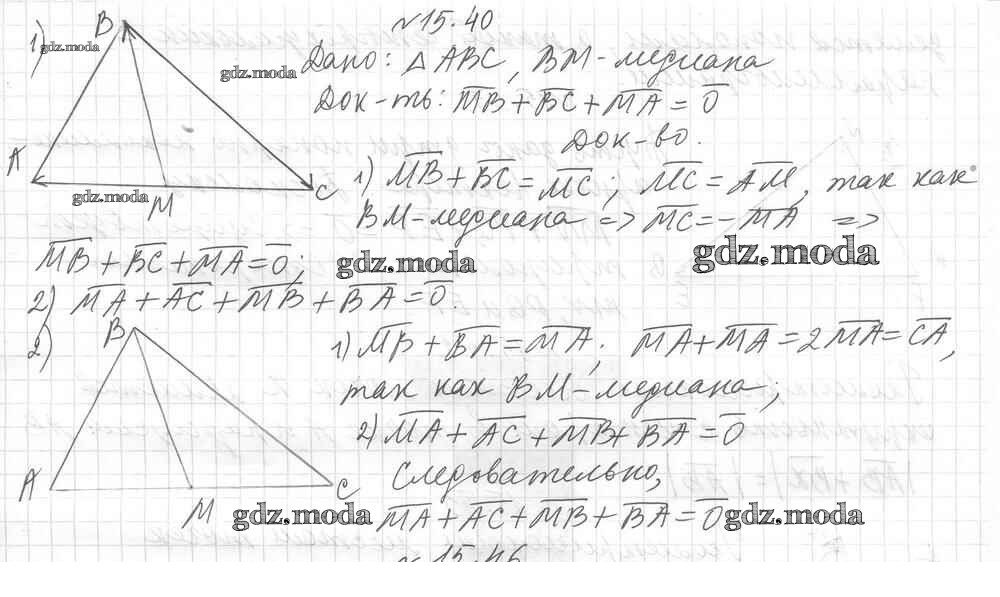 №15.40
1)
B
gdz.moda
gdz.moda
Дано: △ABC, BM-медиана
Док-ть: M̅B̅+B̅C̅+M̅A̅=0̅
Док-во.
A
gdz.moda
M
C
1) M̅B̅+B̅C̅=M̅C̅; M̅C̅=A̅M̅, так как
BM-медиана => M̅C̅=-M̅A̅ =>
M̅B̅+B̅C̅+M̅A̅=0̅;
gdz.moda
gdz.moda
2) M̅A̅+A̅C̅+M̅B̅+B̅A̅=0̅.
2)
B
1) M̅B̅+B̅A̅=M̅A̅; M̅A̅+M̅A̅=2M̅A̅=C̅A̅,
так как BM-медиана;
2) M̅A̅+A̅C̅+M̅B̅+B̅A̅=0̅
A
C
Следовательно,
M
gdz.moda
M̅A̅+A̅C̅+M̅B̅+B̅A̅=0̅
gdz.moda
№15.46